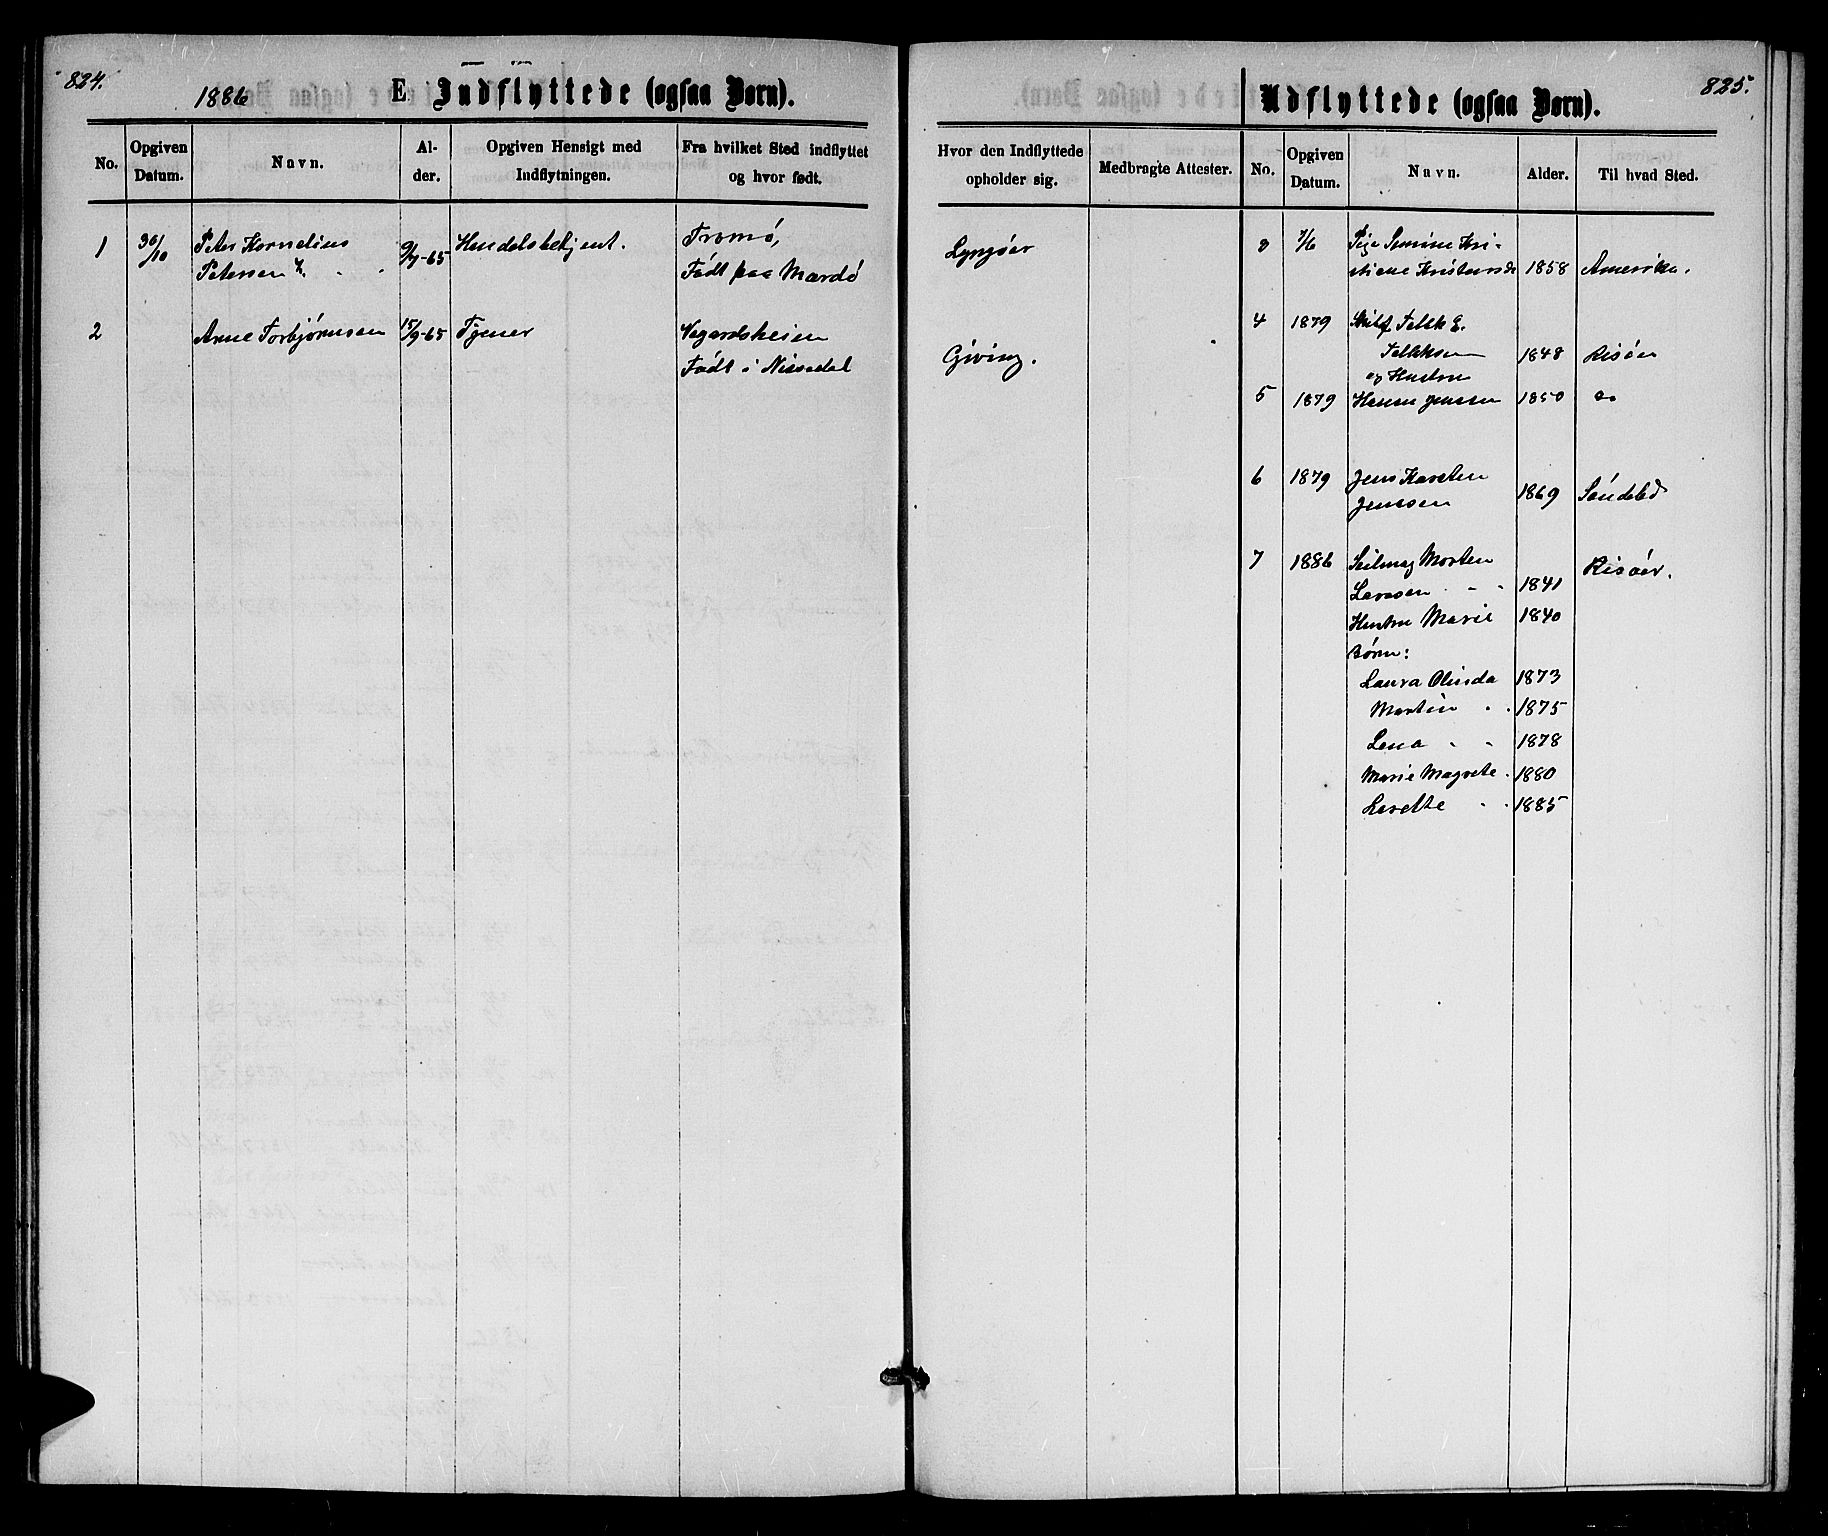 824.
1886
E. Indflyttede (ogsaa Børn).
No.
Opgiven Datum.
Navn.
Al-
der.
Opgiven Hensigt med
Indflytningen.
Fra hvilket Sted indflyttet
og hvor født.
1 30/10 Peter Kornelius 9/9-65 Handelsbetjent. Tromø,
Petersen Født paa Mærdø
2 Arne Torbjørnsen 15/9-65 Tjener Vegardsheien
Født i Nissedal
825.
Udflyttede (ogsaa Børn).
Hvor den Indflyttede
opholder sig.
Medbragte Attester.
No.
Opgiven
Datum.
Navn.
Alder.
Til hvad Sted.
Lyngøer
Giving.
3 7/6 Pige Kri-
stiane 1858 Amerika.
4 1879 Skilf.
1848 Risøer
og Hustru
5 1879 Jensen 1850
6 1879 Jens Karsten
Jenssen 1869 Søndeled
7 1886 Morten Risøer.
Larssen 1841
Hustru Marie 1840
Børn:
Laura Olinda 1873
Martin 1875
Lena 1878
Marie Magrete 1880
Lavette 1885